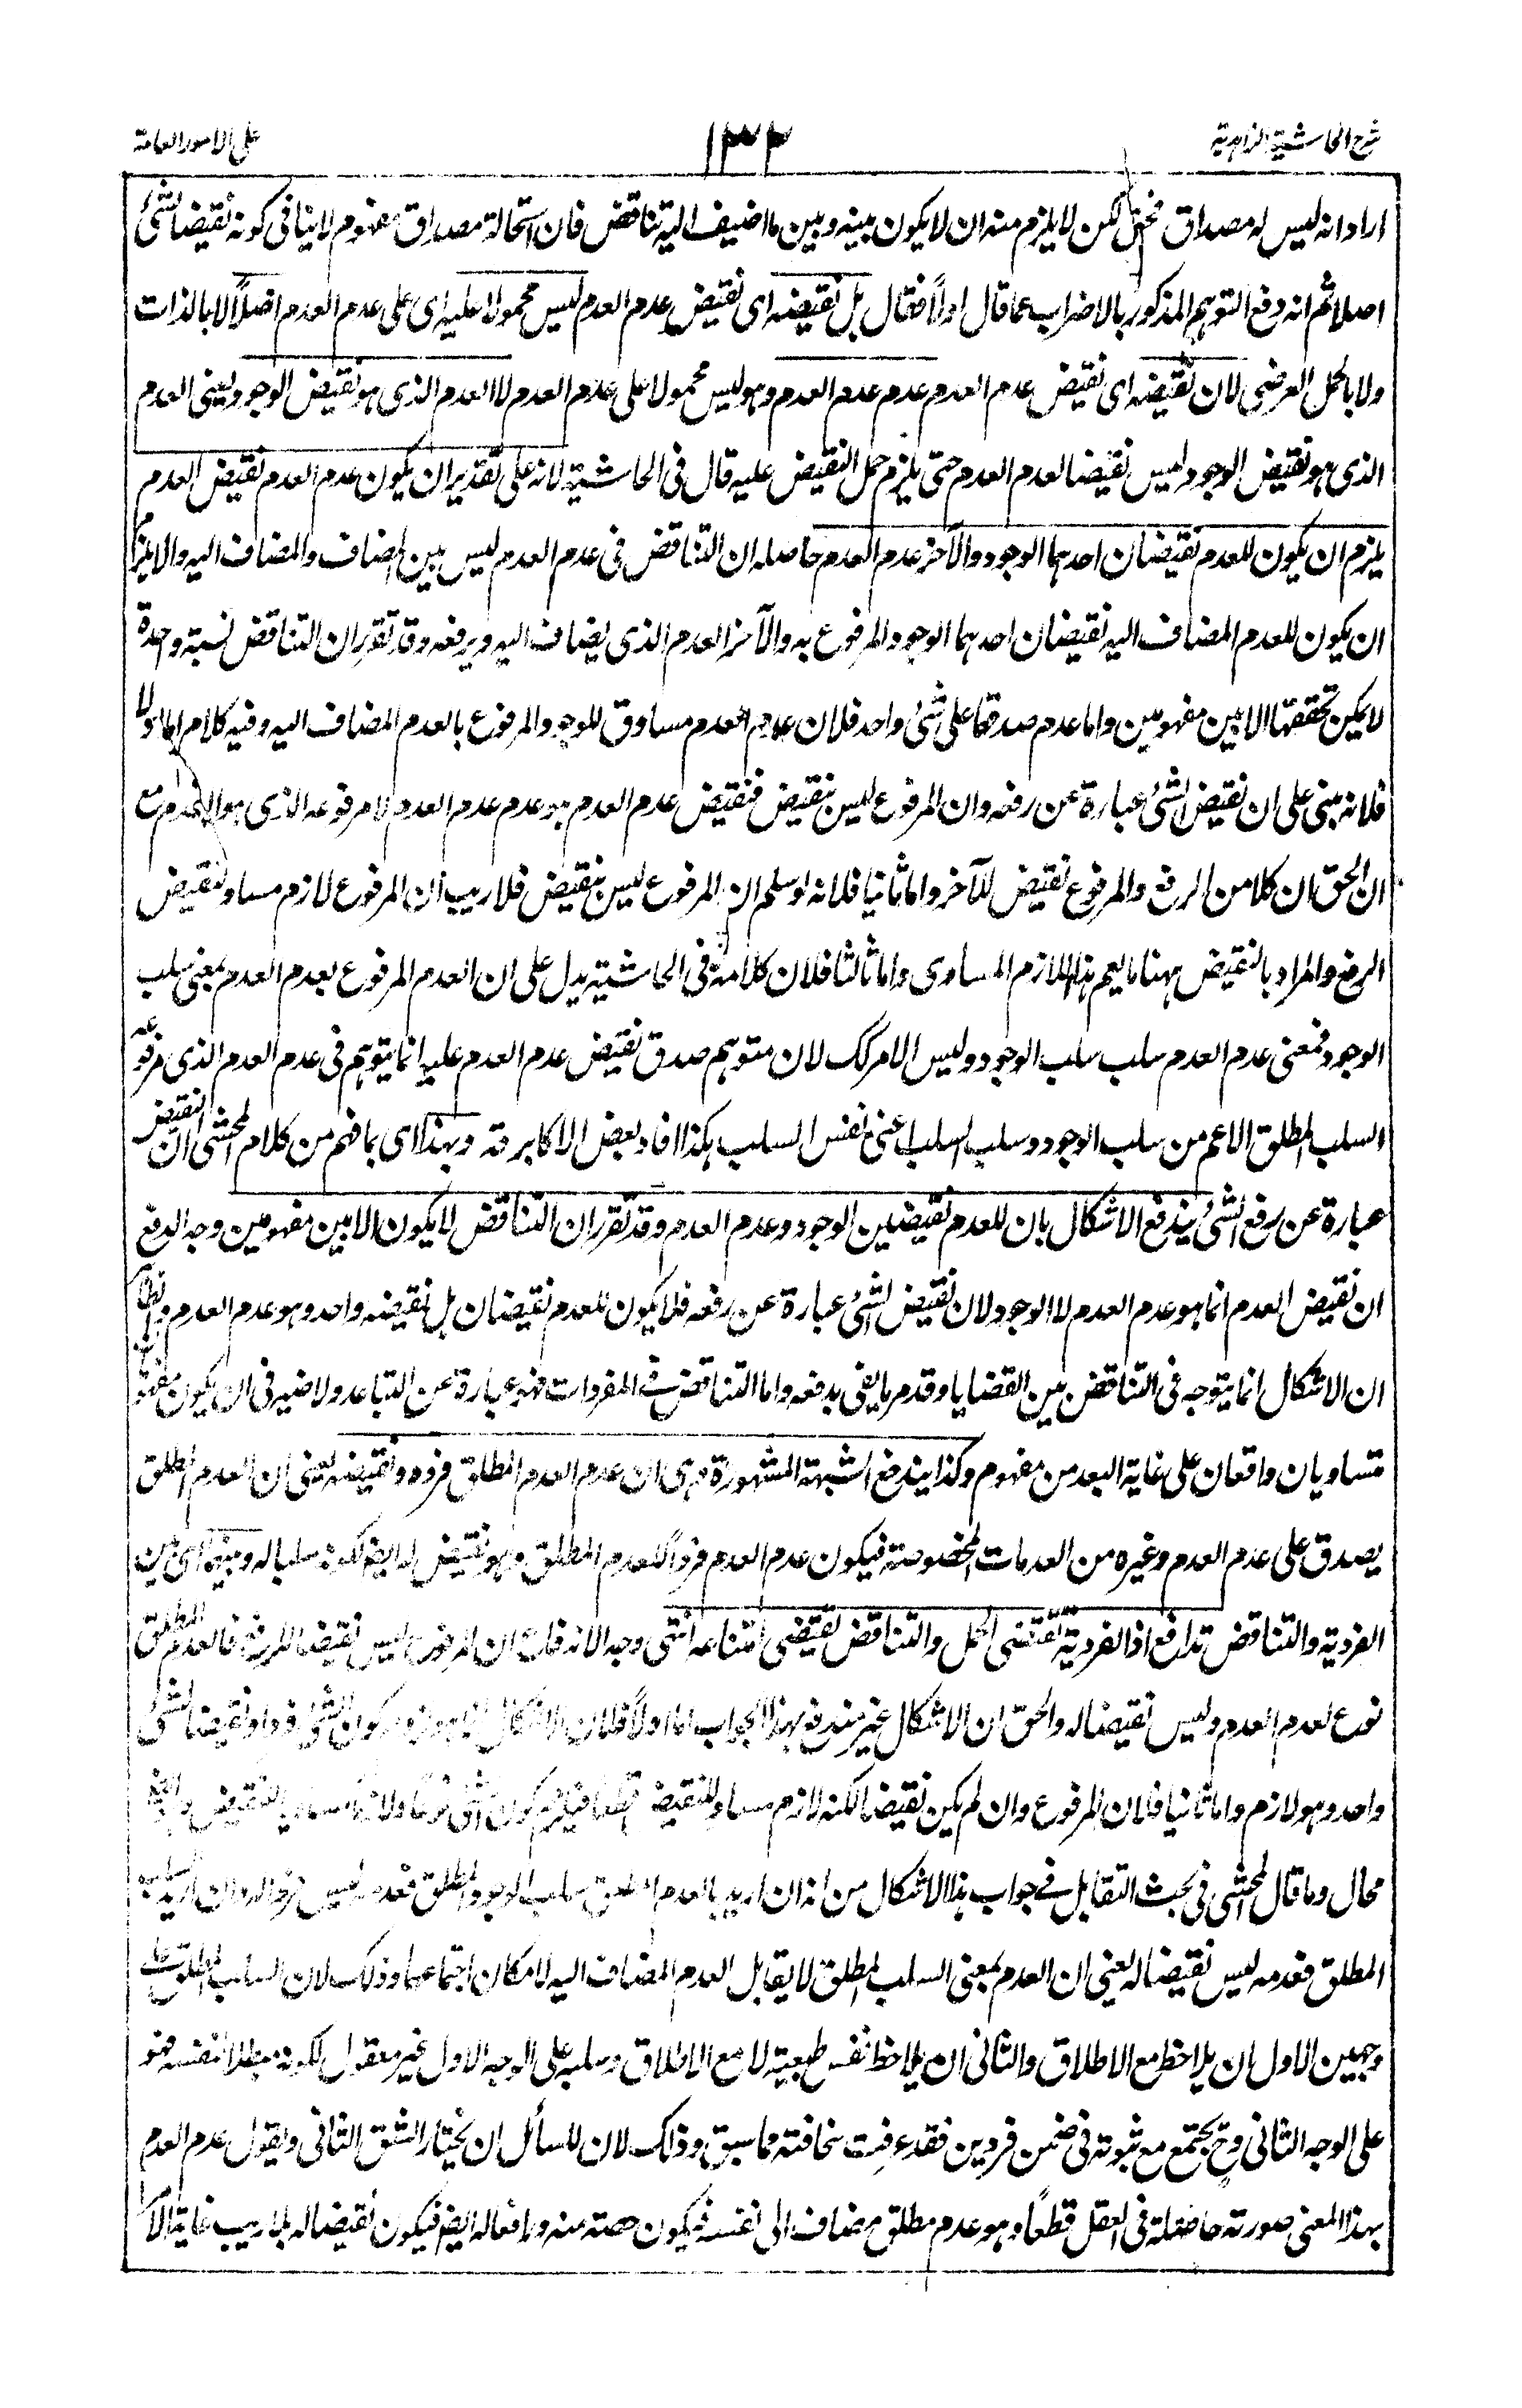 شرح الحاشية الزاهدية
۱۳۲
على الامور العامة
اراد انه ليس له مصداق محقق لكن لا يلزم منه ان لا يكون بينه وبين ما اضيف اليه تناقض فان استحالة مصداق مفهوم لا ينافى كونه نقيضا لشئ
اصلا ثم انه دفع التوهم المذكور بالاضراب عما قال اولاً فقال بل نقيضه اى نقيض عدم العدم ليس محمولا عليه اى على عدم العدم اصلاً لا بالذات
ولا بالحمل العرضى لان نقيضه اى نقيض عدم العدم عدم عدم العدم وهو ليس محمولا على عدم العدم لا العدم الذى هو نقيض الوجود يعنى العدم
الذى هو نقيض الوجود ليس نقيضا لعدم العدم حتى يلزم حمل النقيض عليه قال فى الحاشية لانه على تقدير ان يكون عدم العدم نقيض العدم
يلزم ان يكون للعدم نقيضان احدهما الوجود والآخر عدم العدم حاصله ان التناقض فى عدم العدم ليس بين المضاف والمضاف اليه والا يلزم
ان يكون للعدم المضاف اليه نقيضان احدهما الوجود المرفوع به والآخر العدم الذى يضاف اليه ويرفعه وقد تقرر ان التناقض نسبة واحدة
لا يمكن تحققها الا بين مفهومين واما عدم صدقها على شئ واحد فلان عدم العدم مساوق للوجود المرفوع بالعدم المضاف اليه وفيه كلام اما اولا
فلانه مبنى على ان نقيض الشئ عبارة عن رفعه وان المرفوع ليس بنقيض فنقيض عدم العدم هو عدم عدم العدم لا مرفوعه الذى هو العدم مع
ان الحق ان كلا من الرفع والمرفوع نقيض للآخر واما ثانيا فلانه لو سلم ان المرفوع ليس بنقيض فلا ريب ان المرفوع لازم مساو لنقيض
الرفع والمراد بالنقيض ههنا ما يعم هذا اللازم المساوى واما ثالثا فلان كلامه فى الحاشية يدل على ان العدم المرفوع بعدم العدم بمعنى سلب
الوجود فمعنى عدم العدم سلب سلب الوجود وليس الامر كك لان متوهم صدق نقيض عدم العدم عليه انما يتوهم فى عدم العدم الذى مرفوعه
السلب المطلق الاعم من سلب الوجود وسلب السلب اعنى نفس السلب هكذا افاد بعض الاكابر قد وبهذا اى بما فهم من كلام المحشى ان النقيض
عبارة عن رفع الشئ يندفع الاشكال بان للعدم نقيضين الوجود وعدم العدم وقد تقرر ان التناقض لا يكون الا بين مفهومين وجه الدفع
ان نقيض العدم انما هو عدم العدم لا الوجود لان نقيض الشئ عبارة عن رفعه فلا يكون للعدم نقيضان بل نقيضه واحد وهو عدم العدم والظاهر
ان الاشكال انما يتوجه فى التناقض بين القضايا وقد مر ما يفى بدفعه واما التناقض فى المفردات فهو عبارة عن التباعد ولا ضير فى ان يكون مفهومان
متساويان واقعان على غاية البعد من مفهوم وكذا يندفع الشبهة المشهورة وهى ان عدم العدم المطلق فرده ونقيضه يعنى ان العدم المطلق
يصدق على عدم العدم وغيره من العدمات المخصوصة فيكون عدم العدم فرداً للعدم المطلق وهو نقيض له ايضا لكونه سلبا له وبينهما اى بين
الفردية والتناقض تدافع اذ الفردية تقتضى الحمل والتناقض يقتضى امتناعه انتهى وجه الاندفاع ان المرفوع ليس نقيضا للرفع فالعدم المطلق
نوع لعدم العدم وليس نقيضا له والحق ان الاشكال غير مندفع بهذا الجواب اما اولاً فلان الاشكال انما هو لزوم كون الشئ فردا ونقيضا لشئ
واحد وهو لازم واما ثانيا فلان المرفوع وان لم يكن نقيضا لكنه لازم مساو للنقيض قطعا فيلزم كون الشئ نوعا ولازما مساويا للنقيض
محال وما قال المحشى فى بحث التقابل فى جواب هذا الاشكال من انه ان اريد بالعدم المطلق سلب الوجود المطلق فعدمه ليس فردا له وان اريد السلب
المطلق فعدمه ليس نقيضا له يعنى ان العدم بمعنى السلب المطلق لا يقابل العدم المضاف اليه لامكان اجتماعهما وذلك لان السلب المطلق على
وجهين الاول ان يلاحظ مع الاطلاق والثانى ان يلاحظ نفس طبيعته لا مع الاطلاق وسلبه على الوجه الاول غير معقول لكونه مبطلا لنفسه فهو
على الوجه الثانى وح يجتمع مع ثبوته فى ضمن فردين فقد عرفت سخافته مما سبق وذلك لان للسائل ان يختار الشق الثانى ويقول عدم العدم
بهذا المعنى صورته حاصلة فى العقل قطعاً وهو عدم مطلق مضاف الى نفسه فيكون حصته منه ورافعا له ايضا فيكون نقيضا له بلا ريب غاية الامر